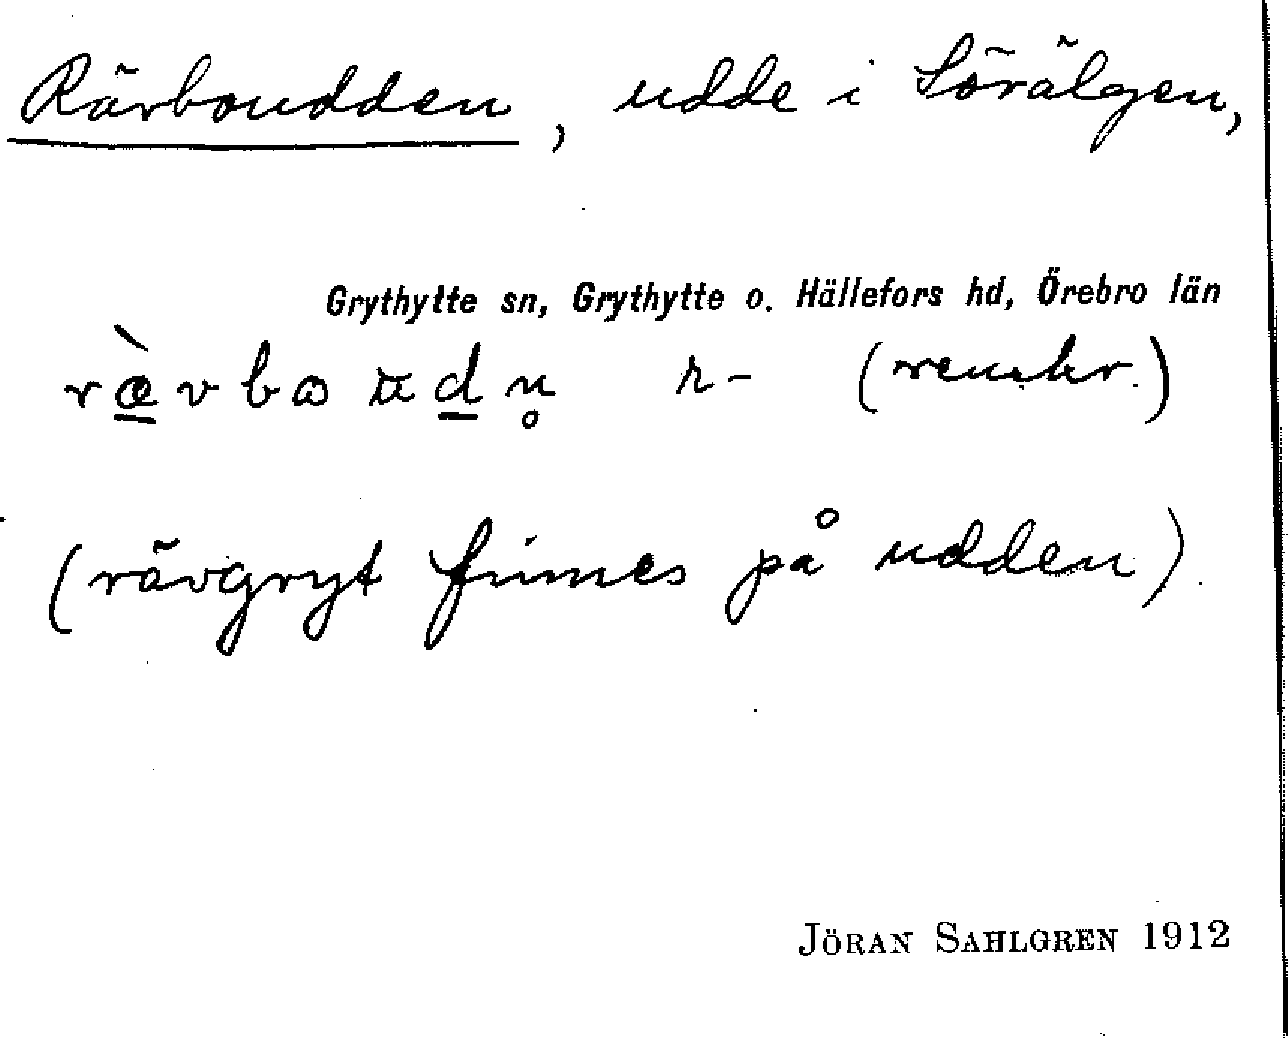 Rävboudden, udde i Sörälgen,
Grythytte sn, Grythytte o. Hällefors hd, Örebro län
r-
(rävgryt finnes på udden).
JÖRAN SAHLGREN 1912